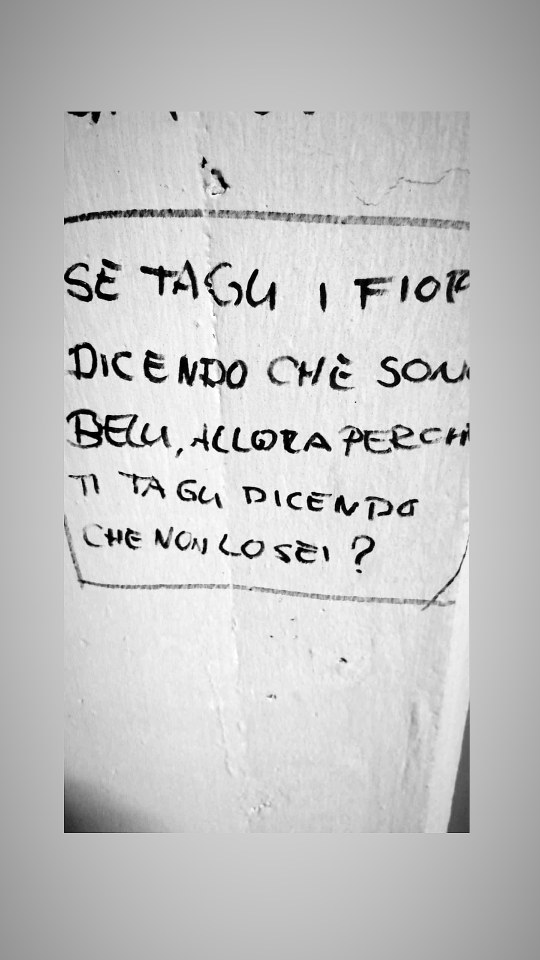 SE TAGLI I FIOR
DICENDO CHE SONO
BELLI, ALLORA PERCH
TI TAGLI DICENDO
CHE NON LO SEI?